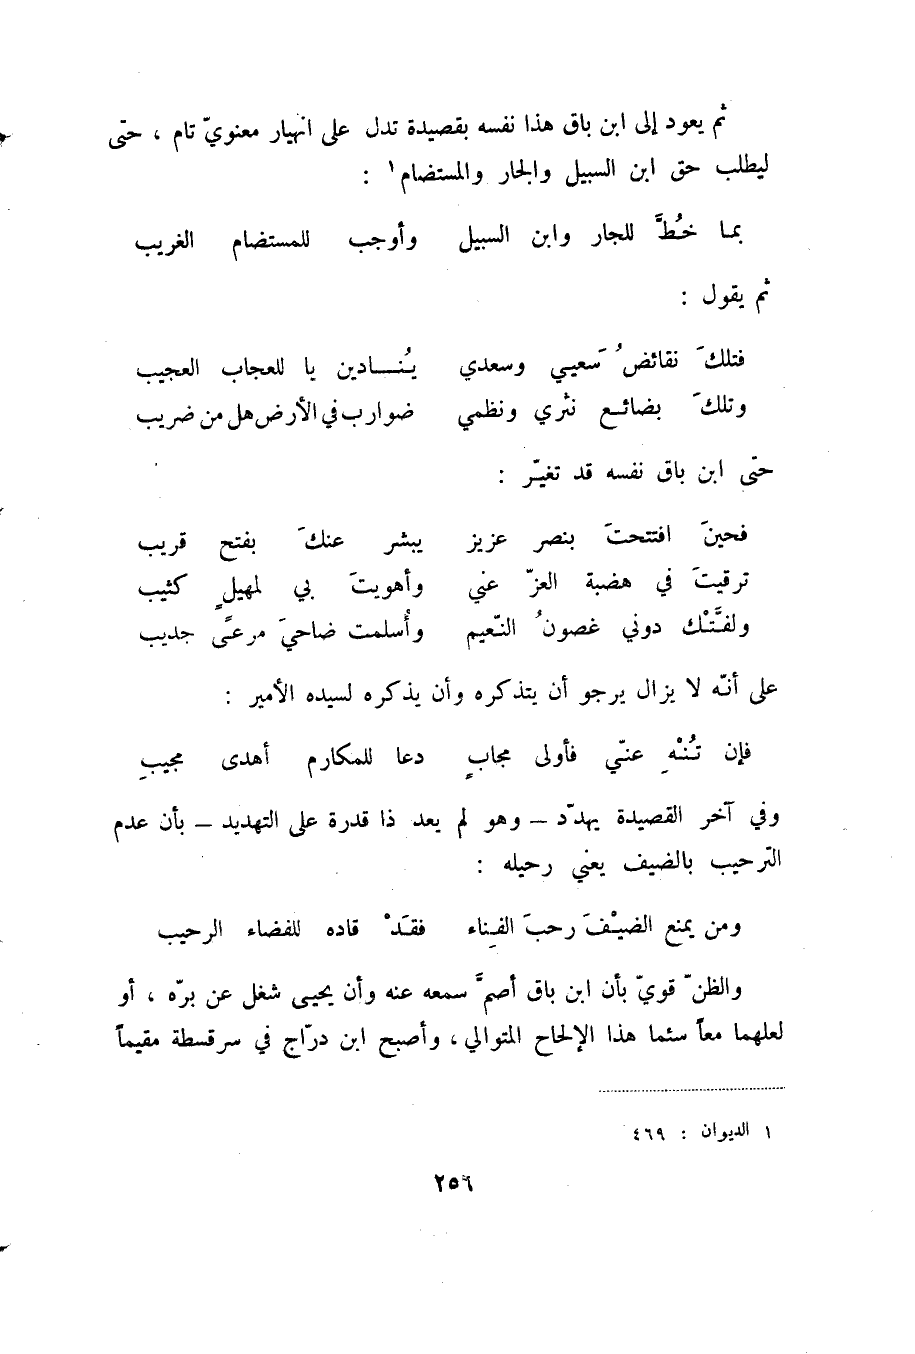 ثم يعود إلى ابن باق هذا نفسه بقصيدة تدل على انهيار معنويّ تام ، حتى
ليطلب حق ابن السبيل والجار والمستضام١ :
بما خُطَّ للجار وابن السبيل وأوجب للمستضام الغريب
ثم يقول :
فتلكَ نقائضُ سَعيي وسعدي يُنـــادين يا للعجاب العجيب
وتلكَ بضائع نثري ونظمي ضوارب في الأرض هل من ضريب
حتى ابن باق نفسه قد تغيّر :
فحينَ افتتحتَ بنصر عزيز يبشر عنكَ بفتح قريب
ترقيتَ في هضبة العزّ عني وأهويتَ بي لمهيلٍ كثيب
ولفتَّنْك دوني غصونُ النّعيم وأُسلمت ضاحيَ مرعىً جديب
على أنّه لا يزال يرجو أن يتذكره وأن يذكره لسيده الأمير :
فإن تُنْهِ عنّي فأولى مجابٍ دعا للمكارم أهدى مجيبِ
وفي آخر القصيدة يهدّد – وهو لم يعد ذا قدرة على التهديد – بأن عدم
التّرحيب بالضيف يعني رحيله :
ومن يمنع الضيْفَ رحبَ الفِناء فقَدْ قاده للفضاء الرحيب
والظنّ قويّ بأن ابن باق أصمَّ سمعه عنه وأن يحيى شغل عن برّه ، أو
لعلهما معاً سئما هذا الإلحاح المتوالي ، وأصبح ابن درّاج في سرقسطة مقيماً
١ الديوان : ٤٦٩
٢٥٦